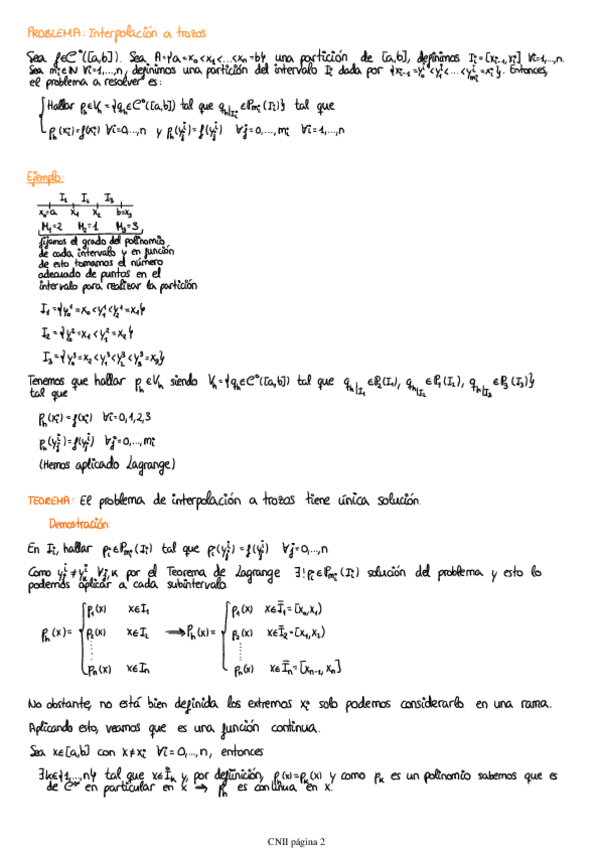 PROBLEMA: Interpolación a trozos
Sea f∈C⁰([a,b]). Sea A={a=x₀<x₁<...<xₙ=b} una partición de [a,b], definimos Iᵢ=[xᵢ₋₁,xᵢ] ∀i=1,...,n.
Sea mᵢ∈ℕ ∀i=1,...,n, definimos una partición del intervalo Iᵢ dada por {xᵢ₋₁=y₀ⁱ<y₁ⁱ<...<y_{mᵢ}ⁱ=xᵢ}. Entonces,
el problema a resolver es:
Hallar pₕ∈Vₕ={qₕ∈C⁰([a,b]) tal que qₕ|_{Iᵢ}∈P_{mᵢ}(Iᵢ)} tal que
pₕ(xᵢ)=f(xᵢ) ∀i=0,...,n y pₕ(yⱼⁱ)=f(yⱼⁱ) ∀j=0,...,mᵢ ∀i=1,...,n
Ejemplo:
I₁ I₂ I₃
x₀=a x₁ x₂ b=x₃
M₁=2 M₂=1 M₃=3
fijamos el grado del polinomio
de cada intervalo y en función
de esto tomamos el número
adecuado de puntos en el
intervalo para realizar la partición
I₁={y₀¹=x₀<y₁¹<y₂¹=x₁}
I₂={y₀²=x₁<y₁²=x₂}
I₃={y₀³=x₂<y₁³<y₂³<y₃³=x₃}
Tenemos que hallar pₕ∈Vₕ siendo Vₕ={qₕ∈C⁰([a,b]) tal que qₕ|_{I₁}∈P₂(I₁), qₕ|_{I₂}∈P₁(I₂), qₕ|_{I₃}∈P₃(I₃)}
tal que
pₕ(xᵢ)=f(xᵢ) ∀i=0,1,2,3
pₕ(yⱼⁱ)=f(yⱼⁱ) ∀j=0,...,mᵢ
(Hemos aplicado Lagrange)
TEOREMA: El problema de interpolación a trozos tiene única solución.
Demostración:
En Iᵢ, hallar pᵢ∈P_{mᵢ}(Iᵢ) tal que pᵢ(yⱼⁱ)=f(yⱼⁱ) ∀j=0,...,n
Como yⱼⁱ≠yₖⁱ ∀j,k por el Teorema de Lagrange ∃!pᵢ∈P_{mᵢ}(Iᵢ) solución del problema y esto lo
podemos aplicar a cada subintervalo.
p₁(x) x∈I₁ p₁(x) x∈Ī₁=[x₀,x₁)
pₕ(x)= p₂(x) x∈I₂ → pₕ(x)= p₂(x) x∈Ī₂=[x₁,x₂)
⋮ ⋮
pₙ(x) x∈Iₙ pₙ(x) x∈Īₙ=[xₙ₋₁,xₙ]
No obstante, no está bien definida los extremos xᵢ solo podemos considerarlo en una rama.
Aplicando esto, veamos que es una función continua.
Sea x∈[a,b] con x≠xᵢ ∀i=0,...,n, entonces
∃k∈{1,...,n} tal que x∈Īₖ y, por definición, pₕ(x)=pₖ(x) y como pₖ es un polinomio sabemos que es
de C⁰ en particular en x → pₕ es continua en x.
CNII página 2